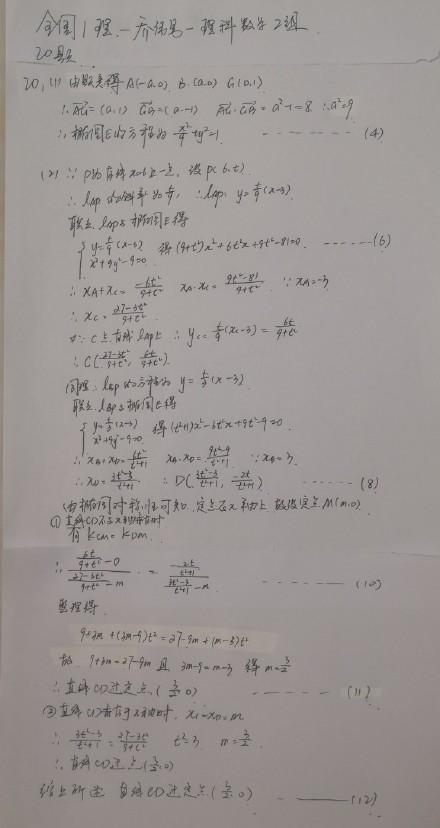 全国1理-乔伟男-理科数学2组
20题
20. (1) 由题意得 A(-a,0) B(a,0) G(0,1)
∴ AG=(a,1) GB=(a,-1) AG·GB=a²-1=8 ∴a²=9
∴椭圆E的方程为 x²/9+y²=1 ------- (4)
(2) ∵ P为直线x=6上一点, 设P(6,t)
∴ lAP的斜率为 t/9, ∴lAP: y=t/9(x-3)
联立 lAP与椭圆E得
{ y=t/9(x-3) 得(9+t²)x²+6t²x+9t²-81=0 ------(6)
x²+9y²-9=0
∴ xA+xC=-6t²/(9+t²) xA·xC=(9t²-81)/(9+t²) ∵xA=-3
∴ xC=(27-3t²)/(9+t²)
又∵C在直线lAP上 ∴ yC=t/9(xC-3)=6t/(9+t²)
∴ C((27-3t²)/(9+t²), 6t/(9+t²))
同理: lBP的方程为 y=t/3(x-3)
联立 lBP与椭圆E得
{ y=t/3(x-3) 得(t²+1)x²-6t²x+9t²-9=0
x²+9y²-9=0
∴ xB+xD=6t²/(t²+1) xB·xD=(9t²-9)/(t²+1) ∵xB=3
∴ xD=(3t²-3)/(t²+1) ∴ D((3t²-3)/(t²+1), -2t/(t²+1)) ------(8)
由椭圆对称性可知, 定点在x轴上 故设定点M(m,0)
① 直线CD不与x轴垂直时
有 kCM=kDM
∴ (6t/(9+t²)-0)/((27-3t²)/(9+t²)-m) = (-2t/(t²+1))/((3t²-3)/(t²+1)-m) ------(10)
整理得
9+3m+(3m-9)t²=27-9m+(m-3)t²
故 9+3m=27-9m 且 3m-9=m-3 得m=3/2
∴直线CD过定点(3/2,0) ------(11)
②直线CD垂直于x轴时, xC=xD=m
∴ (3t²-3)/(t²+1)=(27-3t²)/(9+t²) t²=3 m=3/2
∴直线CD过点(3/2,0)
综上所述 直线CD过定点(3/2,0) ------(12)